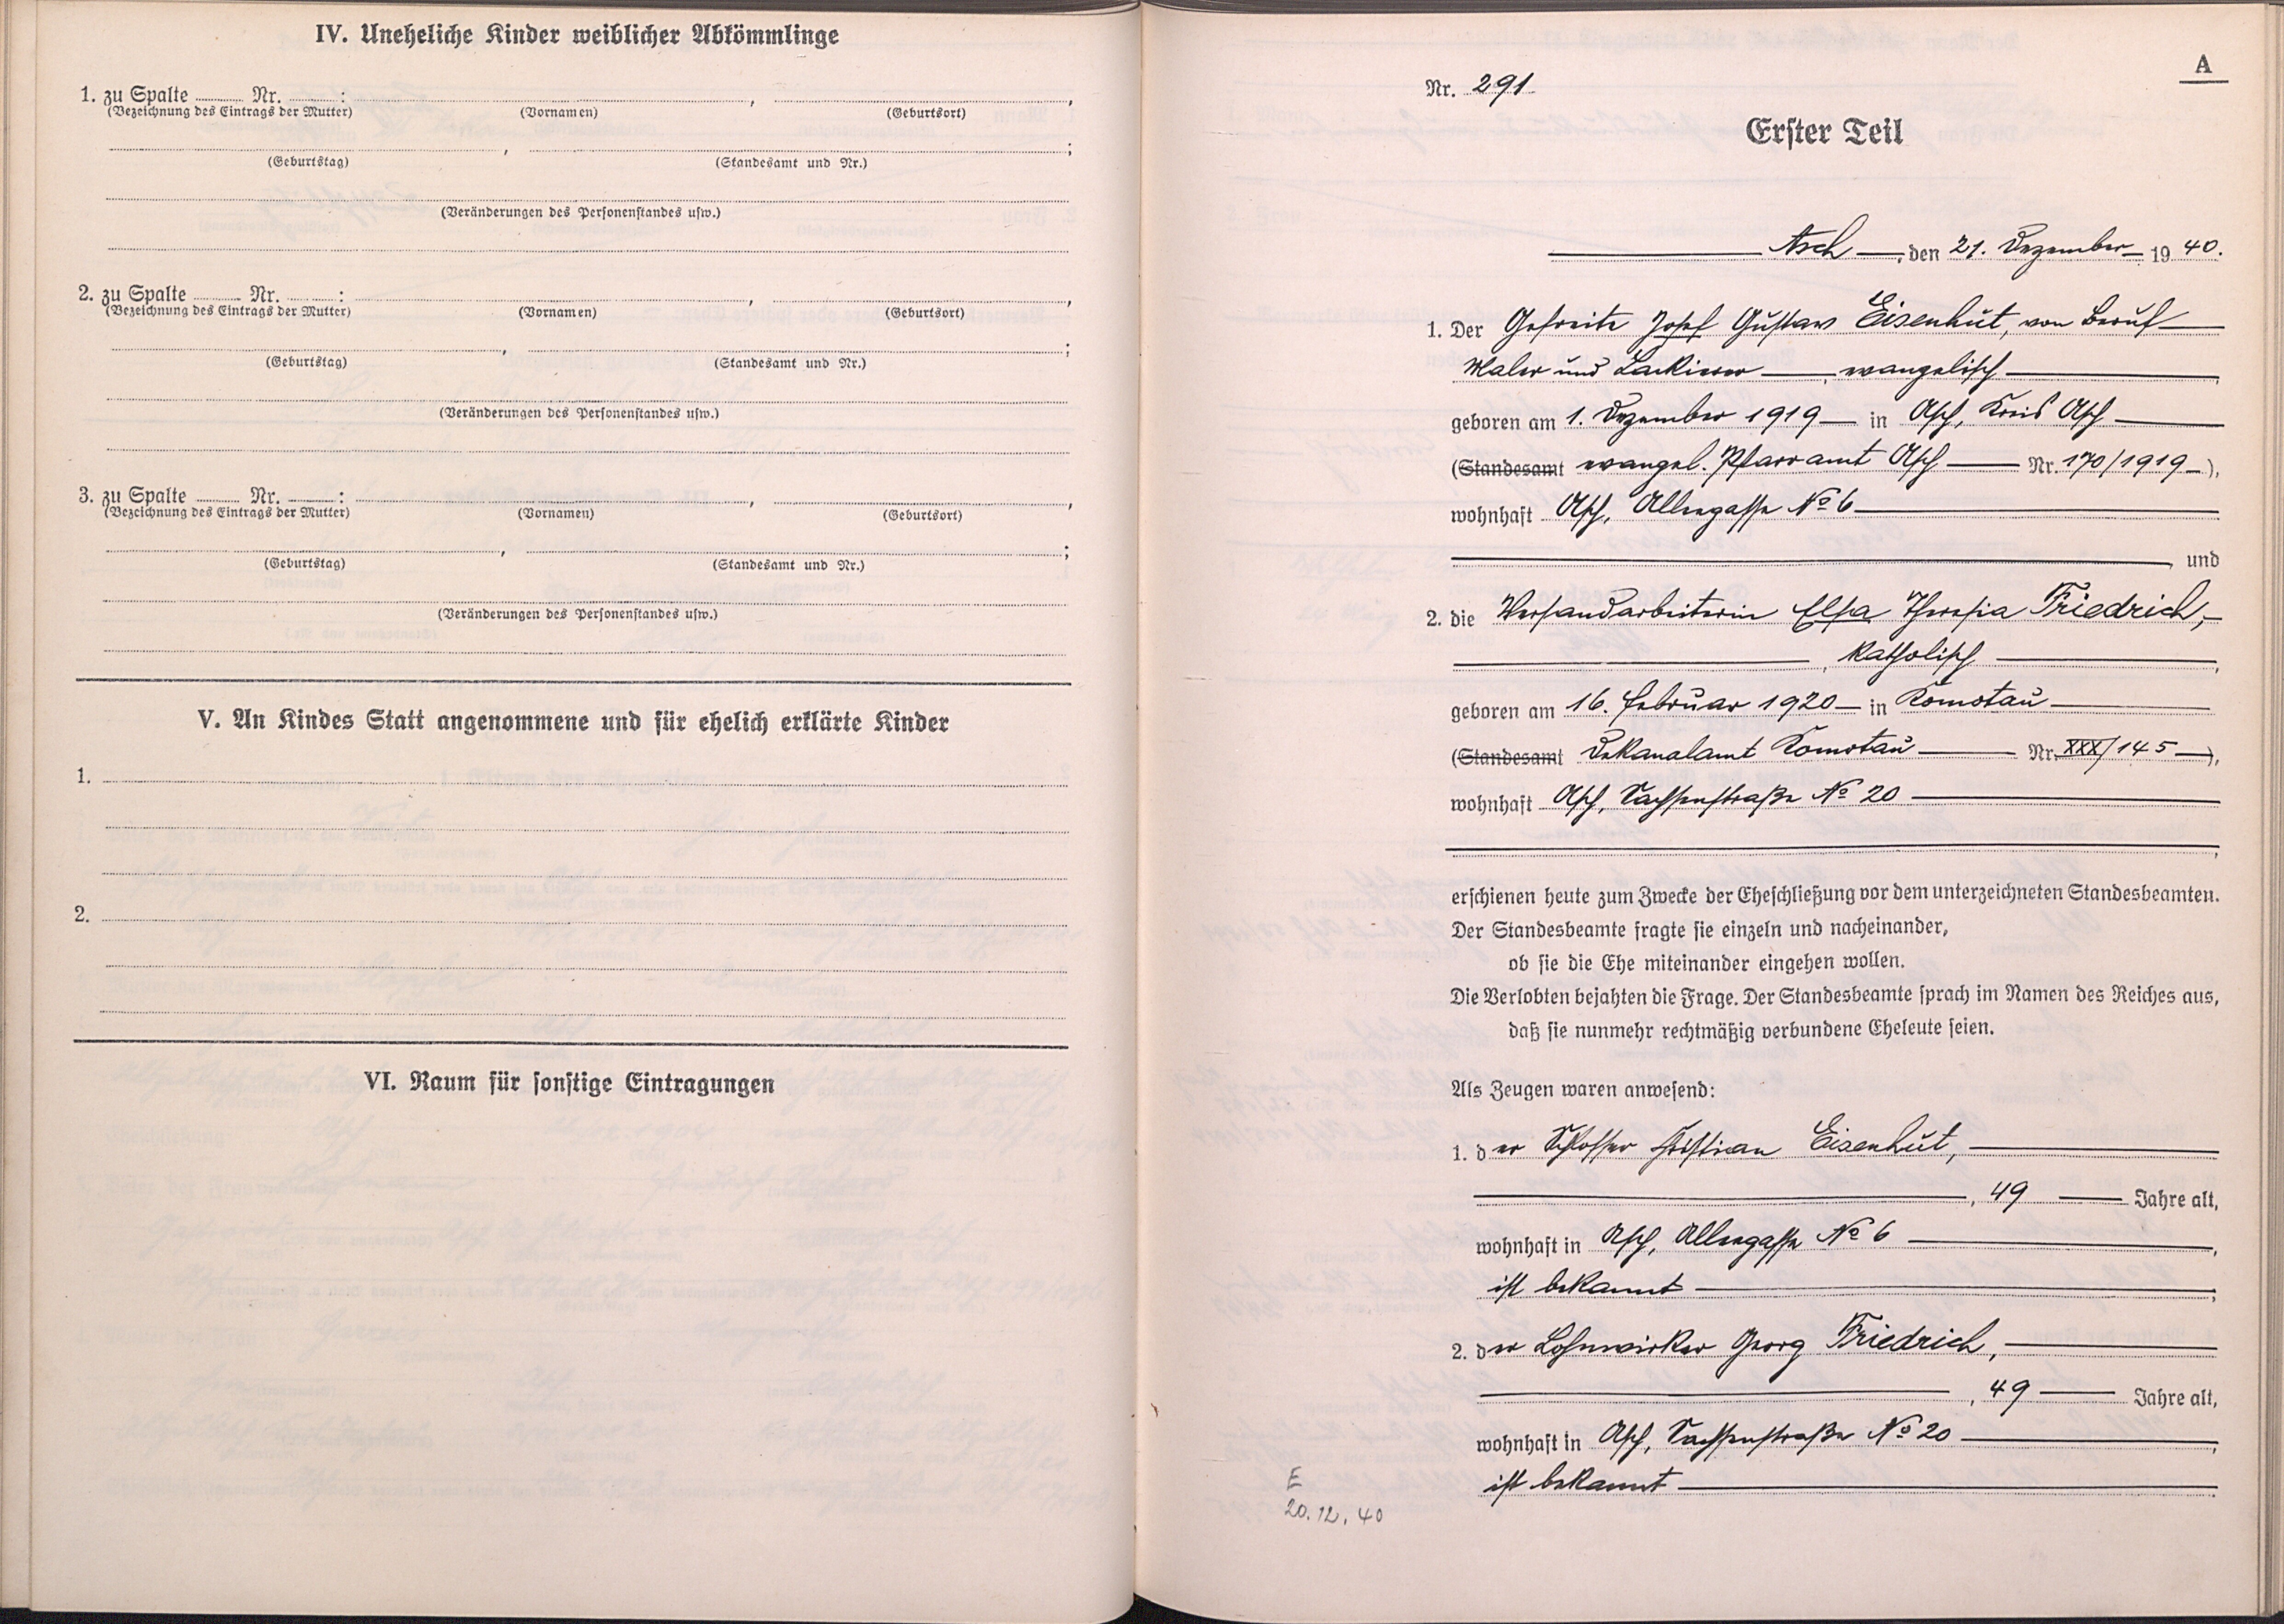 IV. Uneheliche Kinder weiblicher Abkömmlinge
1. zu Spalte ........ Nr. ........ :
(Bezeichnung des Eintrags der Mutter) (Vornamen) (Geburtsort)
(Geburtstag) (Standesamt und Nr.)
(Veränderungen des Personenstandes usw.)
2. zu Spalte ........ Nr. ........ :
(Bezeichnung des Eintrags der Mutter) (Vornamen) (Geburtsort)
(Geburtstag) (Standesamt und Nr.)
(Veränderungen des Personenstandes usw.)
3. zu Spalte ........ Nr. ........ :
(Bezeichnung des Eintrags der Mutter) (Vornamen) (Geburtsort)
(Geburtstag) (Standesamt und Nr.)
(Veränderungen des Personenstandes usw.)
V. An Kindes Statt angenommene und für ehelich erklärte Kinder
1.
2.
VI. Raum für sonstige Eintragungen
A
Nr. 291
Erster Teil
Asch, den 21. Dezember 1940.
1. Der Gefreite Josef Gustav Eisenhut, von Beruf
Maler und Lackierer, evangelisch,
geboren am 1. Dezember 1919 in Asch, Kreis Asch
(Standesamt evangel. Pfarramt Asch Nr. 170/1919),
wohnhaft Asch, Alleegasse No 6
, und
2. die Versandarbeiterin Elsa Theresia Friedrich,
, katholisch,
geboren am 16. Februar 1920 in Komotau
(Standesamt Dekanalamt Komotau Nr. XXX/145),
wohnhaft Asch, Sachsenstraße No 20
,
erschienen heute zum Zwecke der Eheschließung vor dem unterzeichneten Standesbeamten.
Der Standesbeamte fragte sie einzeln und nacheinander,
ob sie die Ehe miteinander eingehen wollen.
Die Verlobten bejahten die Frage. Der Standesbeamte sprach im Namen des Reiches aus,
daß sie nunmehr rechtmäßig verbundene Eheleute seien.
Als Zeugen waren anwesend:
1. der Schlosser Christian Eisenhut,
, 49 Jahre alt,
wohnhaft in Asch, Alleegasse No 6,
ist bekannt;
2. der Lohnwirker Georg Friedrich,
, 49 Jahre alt,
wohnhaft in Asch, Sachsenstraße No 20,
ist bekannt.
E
20.12.40